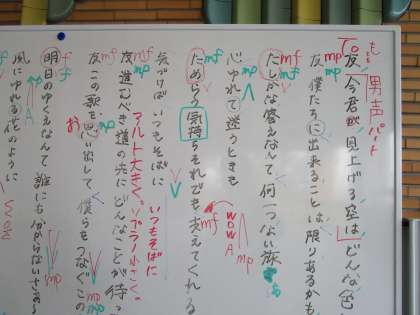 男声パート
友 今君が見上げる空はどんな色
友 僕たちに出来ることは限りあるかも
mp
mf
たしかな答えなんて何一つない旅
mf
mf
心ゆれて迷うときも
mp
ためらう気持ちそれでも支えてくれる
mf
mf
mp
気づけばいつもそばに
いつもそばに
友 進むべき道の先にどんなことが待っ
mf
mp
アルト大きく。ソプラノ小さく。
友 この歌を思い出して僕らをつなぐこの
mf
mp
お
明日のゆくえなんて誰にも分からないさあ
mf
f
mp
風にゆれる花のように